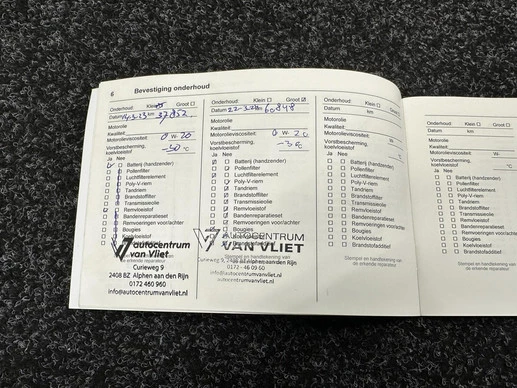 6 Bevestiging onderhoud
Onderhoud: Klein Groot
Datum km 37852
Motorolie
Kwaliteit
Motorolieviscositeit: 0 W- 20
Vorstbescherming,
koelvloeistof -30 °C
Ja Nee
Batterij (handzender)
Pollenfilter
Luchtfilterelement
Poly-V-riem
Tandriem
Brandstoffilter
Transmissieolie
Remvloeistof
Bandenreparatieset
Remvoeringen voor/achter
Bougies
Koelvloeistof
autocentrum
van Vliet
Curieweg 9
2408 BZ Alphen aan den Rijn
0172 460 960
info@autocentrumvanvliet.nl
Onderhoud: Klein Groot
Datum km 60848
Motorolie
Kwaliteit
Motorolieviscositeit: 0 W- 20
Vorstbescherming,
koelvloeistof °C
Ja Nee
Batterij (handzender)
Pollenfilter
Luchtfilterelement
Poly-V-riem
Tandriem
Brandstoffilter
Transmissieolie
Remvloeistof
Bandenreparatieset
Remvoeringen voor/achter
Bougies
AUTOCENTRUM
VAN VLIET
Alphen aan den Rijn
0172 - 46 09 60
info@autocentrumvanvliet.nl
Onderhoud: Klein Groot
Datum km
Motorolie
Kwaliteit
Motorolieviscositeit: W-
Vorstbescherming,
koelvloeistof °C
Ja Nee
Batterij (handzender)
Pollenfilter
Luchtfilterelement
Poly-V-riem
Tandriem
Brandstoffilter
Transmissieolie
Remvloeistof
Bandenreparatieset
Remvoeringen voor/achter
Bougies
Koelvloeistof
Brandstofadditief
Stempel en handtekening van
de erkende reparateur
Onderhoud: Klein Groot
Datum km
Motorolie
Kwaliteit
Motorolieviscositeit: W-
Vorstbescherming,
koelvloeistof °C
Ja Nee
Batterij (handzender)
Pollenfilter
Luchtfilterelement
Poly-V-riem
Tandriem
Brandstoffilter
Transmissieolie
Remvloeistof
Bandenreparatieset
Remvoeringen voor/achter
Bougies
Koelvloeistof
Brandstofadditief
Stempel en handtekening van
de erkende reparateur